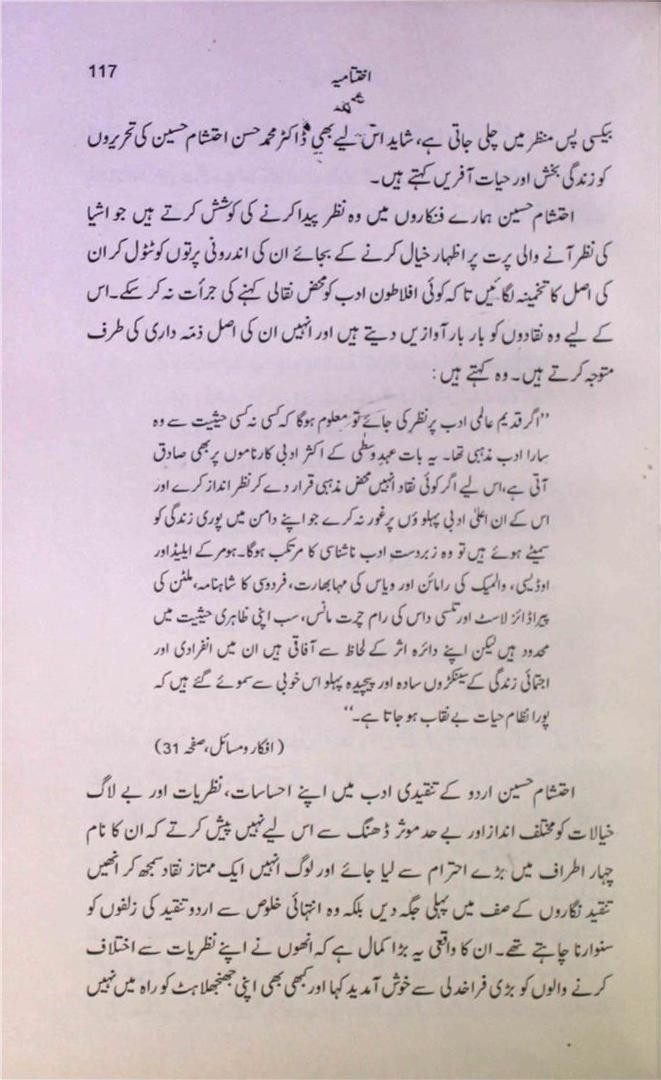 117
اختتامیہ
بیکسی پس منظر میں چلی جاتی ہے، شاید اس لیے بھی ڈاکٹر محمد حسن احتشام حسین کی تحریروں
کو زندگی بخش اور حیات آفریں کہتے ہیں۔
احتشام حسین ہمارے فنکاروں میں وہ نظر پیدا کرنے کی کوشش کرتے ہیں جو اشیا
کی نظر آنے والی پرت پر اظہار خیال کرنے کے بجائے ان کی اندرونی پرتوں کو ٹٹول کر ان
کی اصل کا تخمینہ لگائیں تا کہ کوئی افلاطون ادب کو محض نقالی کہنے کی جرأت نہ کر سکے۔ اس
کے لیے وہ نقادوں کو بار بار آوازیں دیتے ہیں اور انہیں ان کی اصل ذمّہ داری کی طرف
متوجہ کرتے ہیں۔ وہ کہتے ہیں:
"اگر قدیم عالمی ادب پر نظر کی جائے تو معلوم ہوگا کہ کسی نہ کسی حیثیت سے وہ
سارا ادب مذہبی تھا۔ یہ بات عہد وسطیٰ کے اکثر ادبی کارناموں پر بھی صادق
آتی ہے، اس لیے اگر کوئی نقاد انہیں محض مذہبی قرار دے کر نظر انداز کرے اور
اس کے ان اعلیٰ ادبی پہلوؤں پر غور نہ کرے جو اپنے دامن میں پوری زندگی کو
سمیٹے ہوئے ہیں تو وہ زبردست ادب ناشناسی کا مرتکب ہوگا۔ ہومر کے ایلیڈ اور
اوڈیسی، والمیک کی رامائن اور ویاس کی مہابھارت، فردوسی کا شاہنامہ، ملٹن کی
پیراڈائز لاسٹ اور تلسی داس کی رام چرت مانس، سب اپنی ظاہری حیثیت میں
محدود ہیں لیکن اپنے دائرہ اثر کے لحاظ سے آفاقی ہیں ان میں انفرادی اور
اجتمائی زندگی کے سینکڑوں سادہ اور پیچیدہ پہلو اس خوبی سے سموئے گئے ہیں کہ
پورا نظام حیات بے نقاب ہو جاتا ہے۔"
(افکار و مسائل، صفحہ 31)
احتشام حسین اردو کے تنقیدی ادب میں اپنے احساسات، نظریات اور بے لاگ
خیالات کو مختلف انداز اور بے حد موثر ڈھنگ سے اس لیے نہیں پیش کرتے کہ ان کا نام
چہار اطراف میں بڑے احترام سے لیا جائے اور لوگ انہیں ایک ممتاز نقاد سمجھ کر انھیں
تنقید نگاروں کے صف میں پہلی جگہ دیں بلکہ وہ انتہائی خلوص سے اردو تنقید کی زلفوں کو
سنوارنا چاہتے تھے۔ ان کا واقعی یہ بڑا کمال ہے کہ انھوں نے اپنے نظریات سے اختلاف
کرنے والوں کو بڑی فراخدلی سے خوش آمدید کہا اور کبھی بھی اپنی جھنجھلاہٹ کو راہ میں نہیں